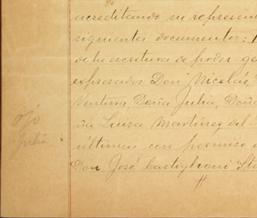 acreditando su represen
siguientes documentos:
de la escritura de poder ge
expresados Don Nicolás
Ventura, Doña Julia, Doña
ña Luisa Martinez del
últimas con permiso
Don José Castiglioni
Julia